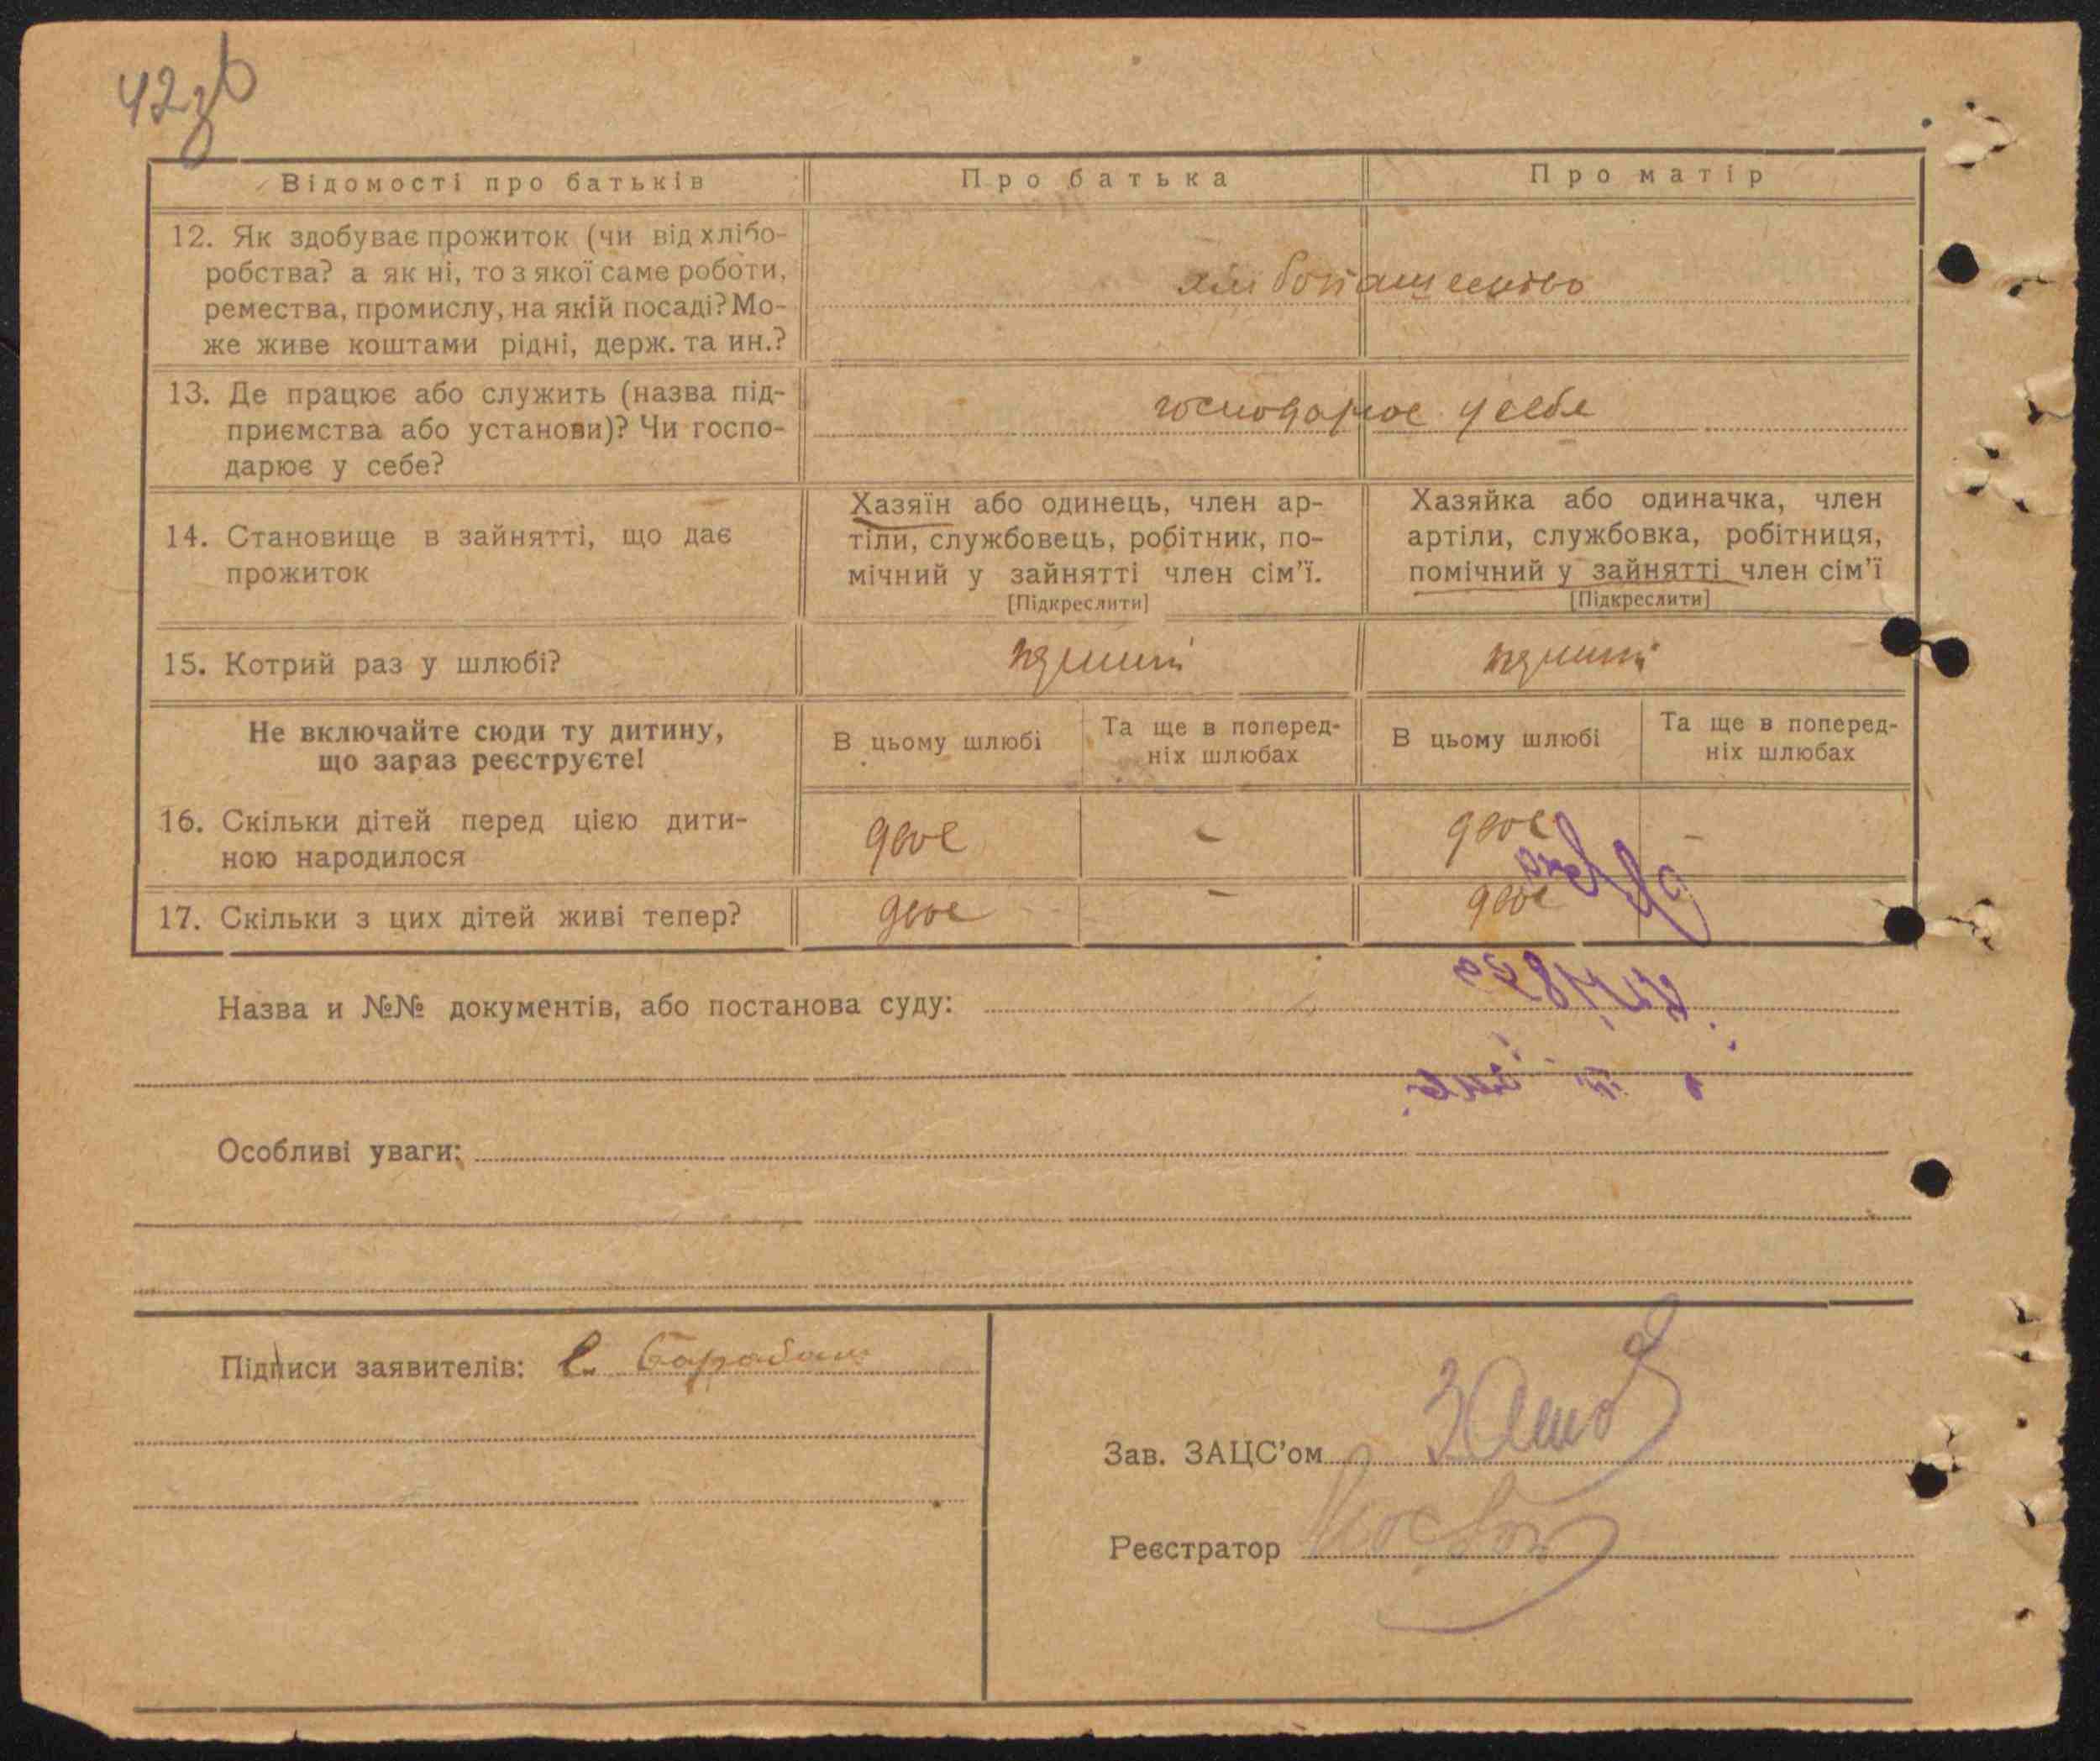 42зв
Відомості про батьків
Про батька
Про матір
12. Як здобуває прожиток (чи від хлібо-
робства? а як ні, то з якої саме роботи,
ремества, промислу, на якій посаді? Мо-
же живе коштами рідні, держ. та ин.?
13. Де працює або служить (назва під-
приємства або установи)? Чи госпо-
дарює у себе?
господарює у себе
14. Становище в зайнятті, що дає
прожиток
Хазяїн або одинець, член ар-
тіли, службовець, робітник, по-
мічний у зайнятті член сім'ї.
[Підкреслити]
Хазяйка або одиначка, член
артіли, службовка, робітниця,
помічний у зайнятті член сім'ї
[Підкреслити]
15. Котрий раз у шлюбі?
Не включайте сюди ту дитину,
що зараз реєструєте!
В цьому шлюбі
Та ще в поперед-
ніх шлюбах
В цьому шлюбі
Та ще в поперед-
ніх шлюбах
16. Скільки дітей перед цією дити-
ною народилося
двоє
-
двоє
-
17. Скільки з цих дітей живі тепер?
двоє
-
двоє
Назва и №№ документів, або постанова суду:
Особливі уваги:
Підписи заявителів: Є. Барабаш
Зав. ЗАЦС'ом
Реєстратор